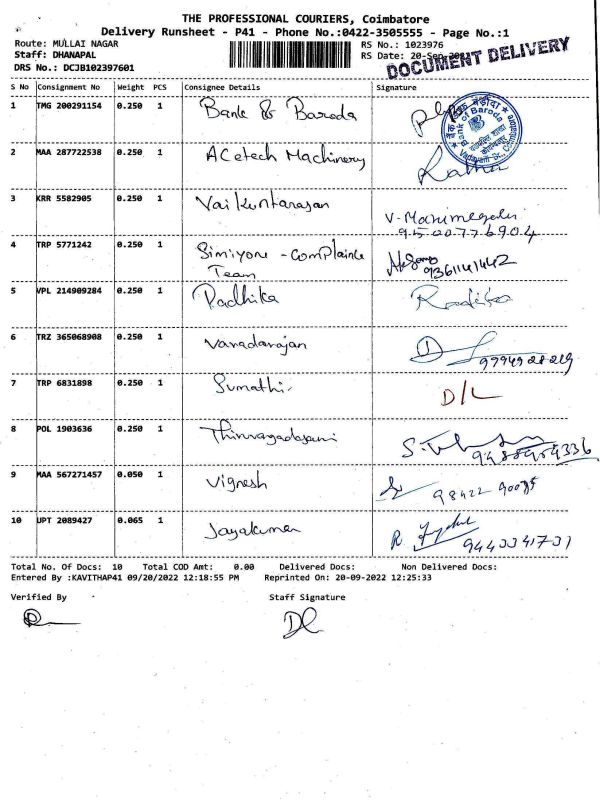 THE PROFESSIONAL COURIERS, Coimbatore
Delivery Runsheet - P41 - Phone No.:0422-3505555 - Page No.:1
Route: MULLAI NAGAR RS No.: 1023976
Staff: DHANAPAL RS Date: 20-Sep-2022
DRS No.: DCJB102397601 DOCUMENT DELIVERY
S No Consignment No Weight PCS Consignee Details Signature
1 TMG 200291154 0.250 1 Bank of Baroda
बैंक ऑफ़ बड़ौदा Bank of Baroda
2 MAA 287722538 0.250 1 ACetech Machinery Ratna
3 KRR 5582905 0.250 1 Vaikuntarajan V-Manimegalai
9500776904
4 TRP 5771242 0.250 1 Simiyone - Complaince
Team 9361141442
5 VPL 214909284 0.250 1 Radhika Radhika
6 TRZ 365068908 0.250 1 Varadarajan
7 TRP 6831898 0.250 1 Sumathi. D/L
8 POL 1903636 0.250 1
9 MAA 567271457 0.050 1 Vignesh 98422 90085
10 UPT 2089427 0.065 1 Jayakumar 9443341731
Total No. Of Docs: 10 Total COD Amt: 0.00 Delivered Docs: Non Delivered Docs:
Entered By :KAVITHAP41 09/20/2022 12:18:55 PM Reprinted On: 20-09-2022 12:25:33
Verified By Staff Signature